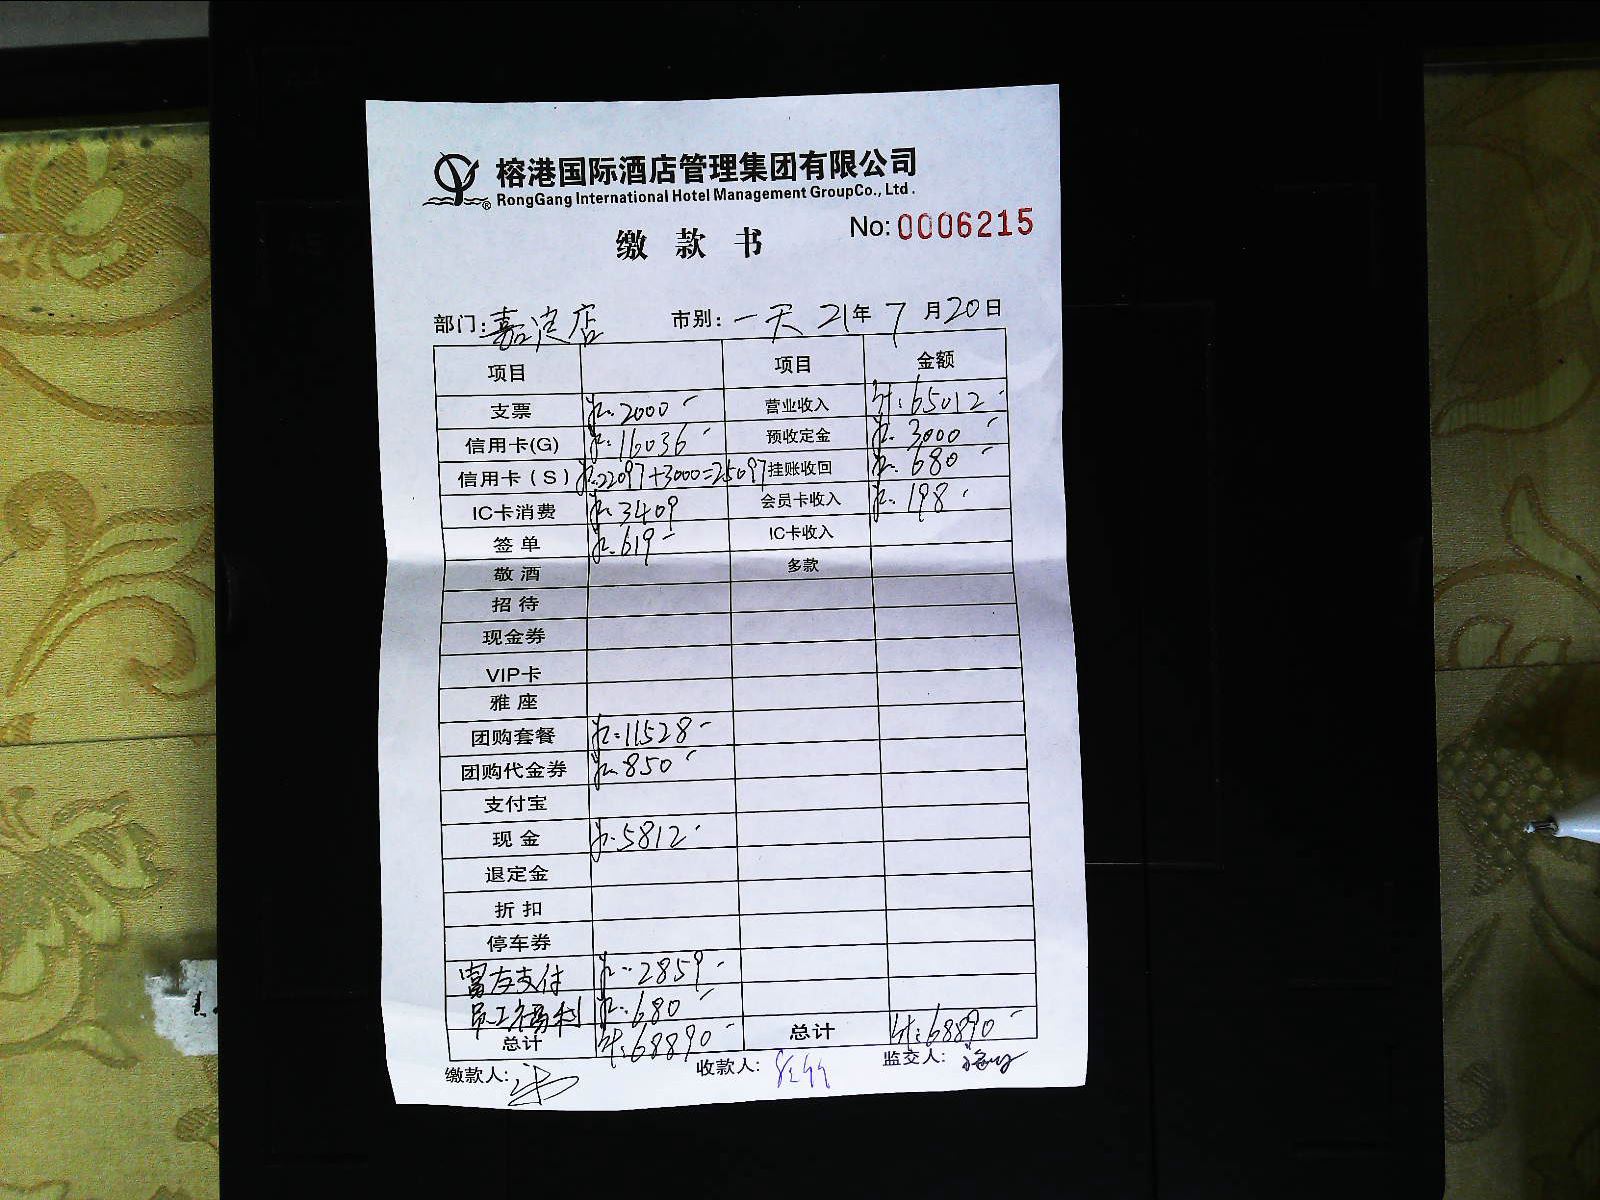 榕港国际酒店管理集团有限公司
RongGang International Hotel Management GroupCo., Ltd.
No: 0006215
缴款书
部门: 嘉定店 市别: 一天 21年 7月20日
项目 项目 金额
支票 2000 营业收入 计: 65012
信用卡(G) 16036 预收定金 3000
信用卡(S) 22097+3000=25097 挂账收回 680
IC卡消费 3409 会员卡收入 198
签单 619 IC卡收入
敬酒 多款
招待
现金券
VIP卡
雅座
团购套餐 11528
团购代金券 850
支付宝
现金 5812
退定金
折扣
停车券
富友支付 2859
员工福利 680
总计 计: 68890 总计 计: 68890
缴款人: 收款人: 监交人: